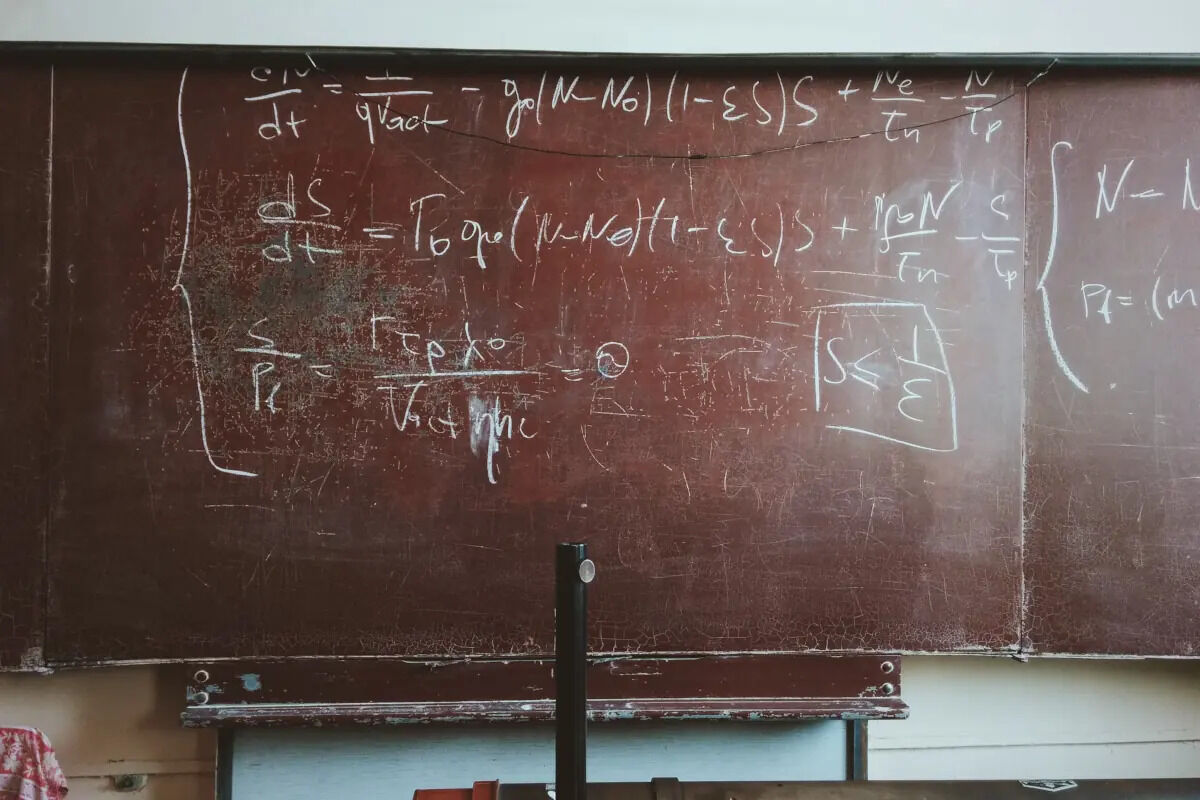 dN/dt = 1/qVact - g₀(N-N₀)(1-εS)S + Ne/τn - N/τp
dS/dt = Γ₀ g₀(N-N₀)(1-εS)S + N/τn - S/τp
S/Pf = Γτpλ₀/Vact ηhc =
S ≤ 1/ε
N - N
Pf = (m